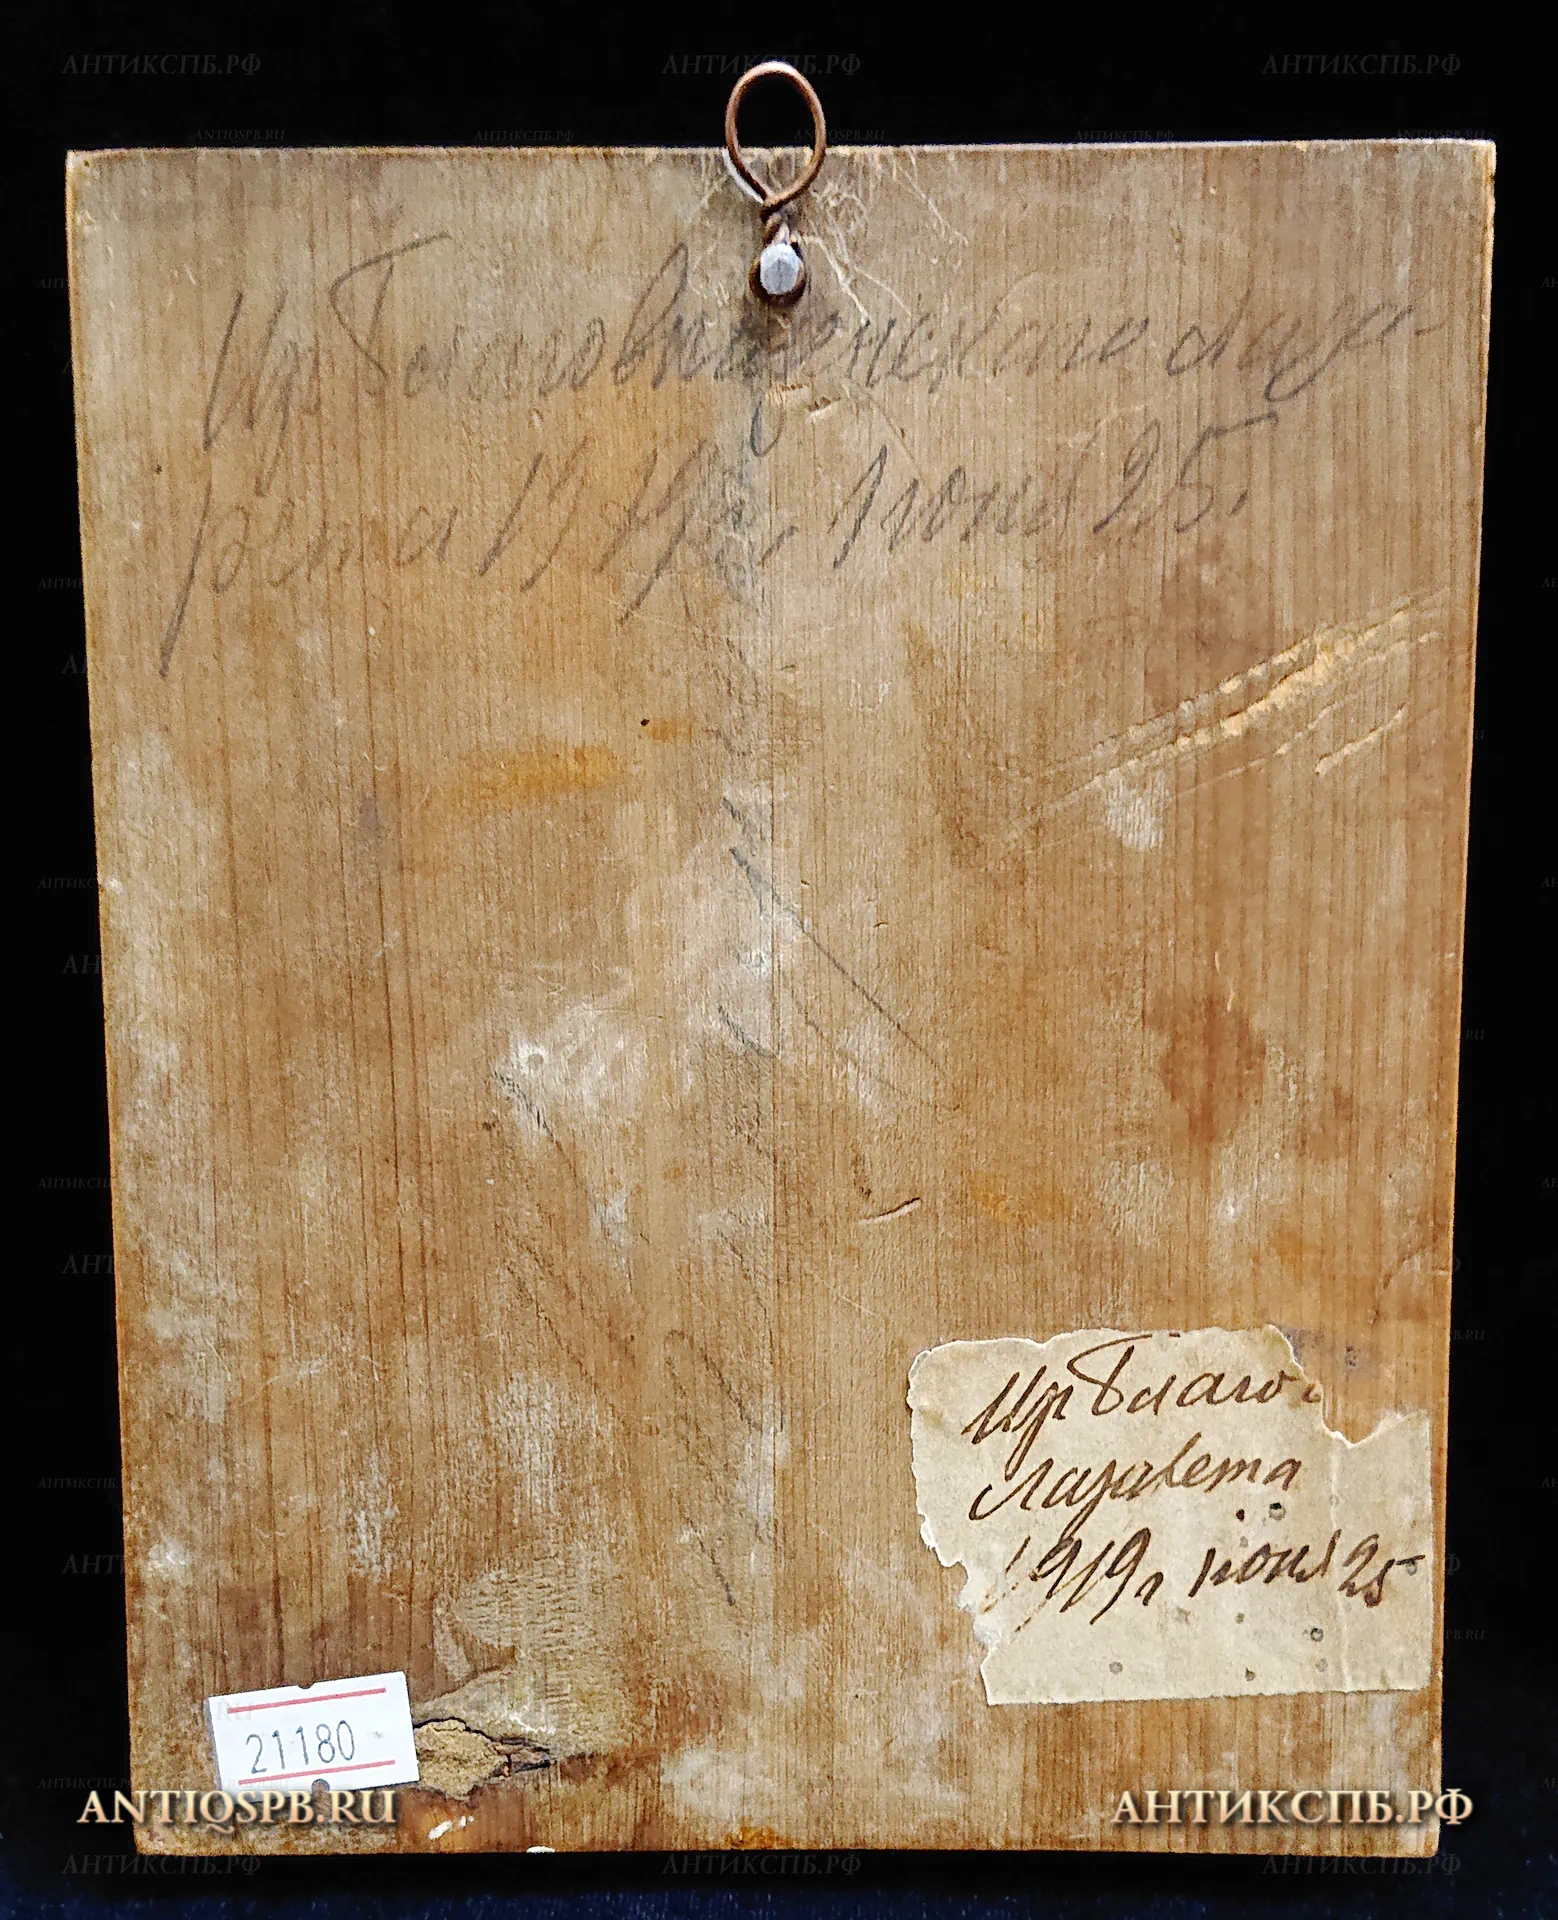 АНТИКСПБ.РФ АНТИКСПБ.РФ АНТИКСПБ.РФ
ANTIQSPB.RU АНТИКСПБ.РФ ANTIQSPB.RU АНТИКСПБ.РФ ANTIQSPB.RU
Из Благовещенскаго лаза-
рета 1919 г. Июня 25.
Из Благо
лазарета
1919 г июня 25
21180
ANTIQSPB.RU АНТИКСПБ.РФ
АНТИКСПБ.РФ АНТИКСПБ.РФ АНТИКСПБ.РФ